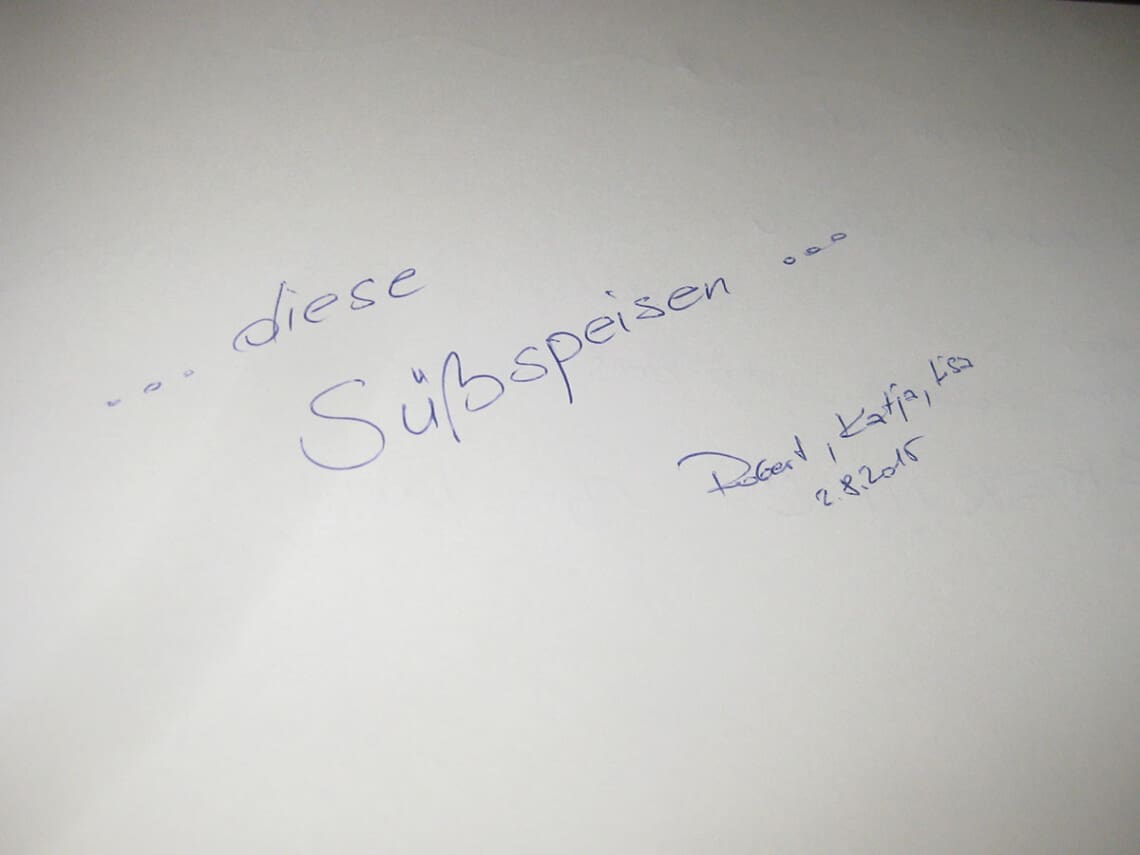 ... diese
Süßspeisen ...
Robert, Katja, Lisa
2.8.2015